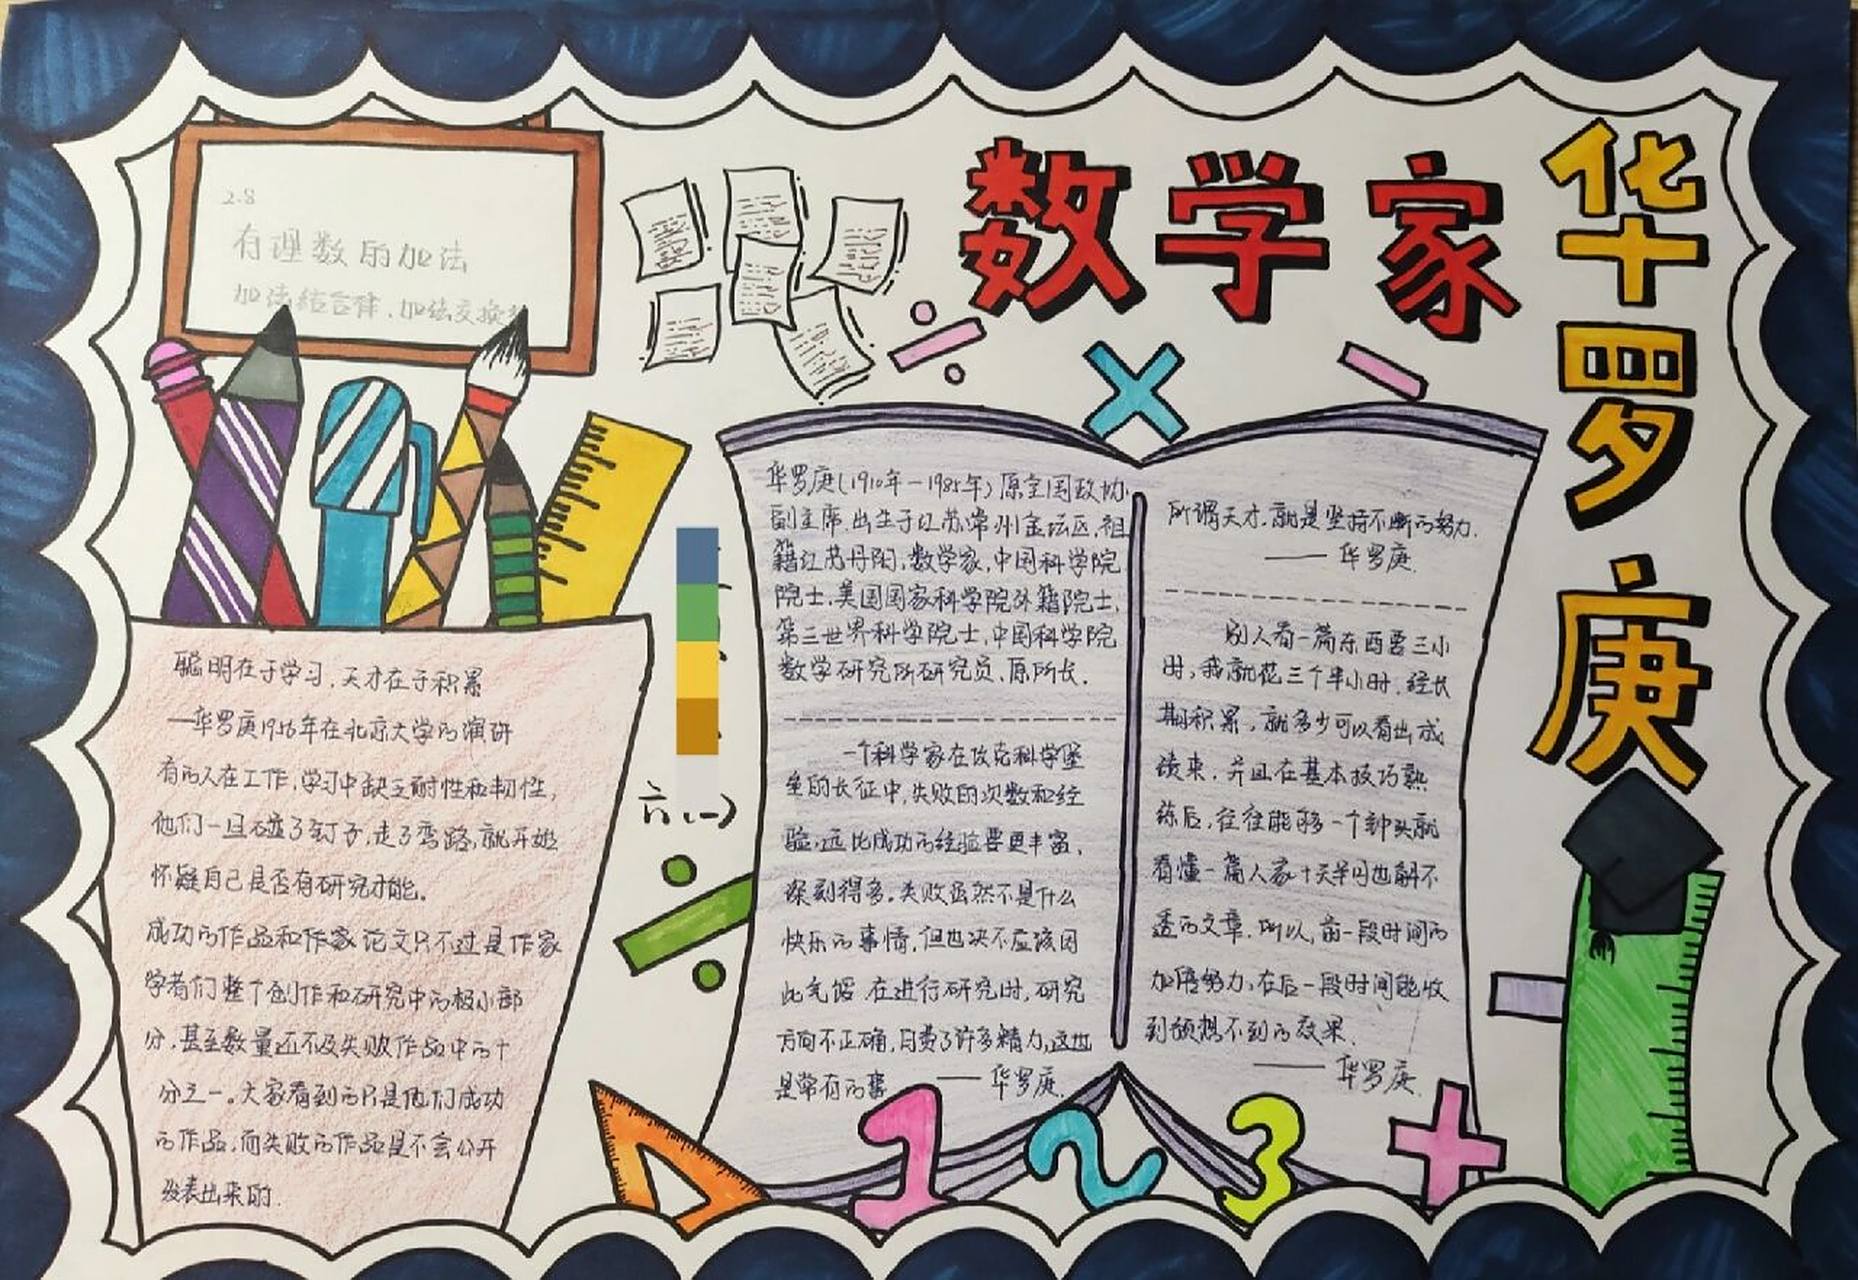 数学家
华罗庚
2.8
有理数的加法
加法结合律,加法交换
聪明在于学习,天才在于积累
—华罗庚1956年在北京大学的演讲
有的人在工作,学习中缺乏耐性和韧性,
他们一旦碰了钉子,走了弯路,就开始
怀疑自己是否有研究才能。
成功的作品和作家论文只不过是作家
学者们整个创作和研究中的极小部
分,甚至数量还不及失败作品中的十
分之一。大家看到的只是他们成功
的作品,而失败的作品是不会公开
发表出来的.
六(一)
华罗庚(1910年—1985年)原全国政协
副主席.出生于江苏常州金坛区,祖
籍江苏丹阳,数学家,中国科学院
院士,美国国家科学院外籍院士,
第三世界科学院院士,中国科学院
数学研究所研究员、原所长.
一个科学家在攻克科学堡
垒的长征中,失败的次数和经
验,远比成功的经验要更丰富,
深刻得多.失败虽然不是什么
快乐的事情,但也决不应该因
此气馁.在进行研究时,研究
方向不正确,白费了许多精力,这也
是常有的事 ——华罗庚.
所谓天才,就是坚持不断的努力.
——华罗庚.
别人看一篇东西要三小
时,我就花三个半小时.经长
期积累,就多少可以看出成
绩来.并且在基本技巧熟
练后,往往能够一个钟头就
看懂一篇人家十天半月也解不
透的文章.所以,前一段时间的
加倍努力,在后一段时间能收
到预想不到的效果.
——华罗庚.
1 2 3 +